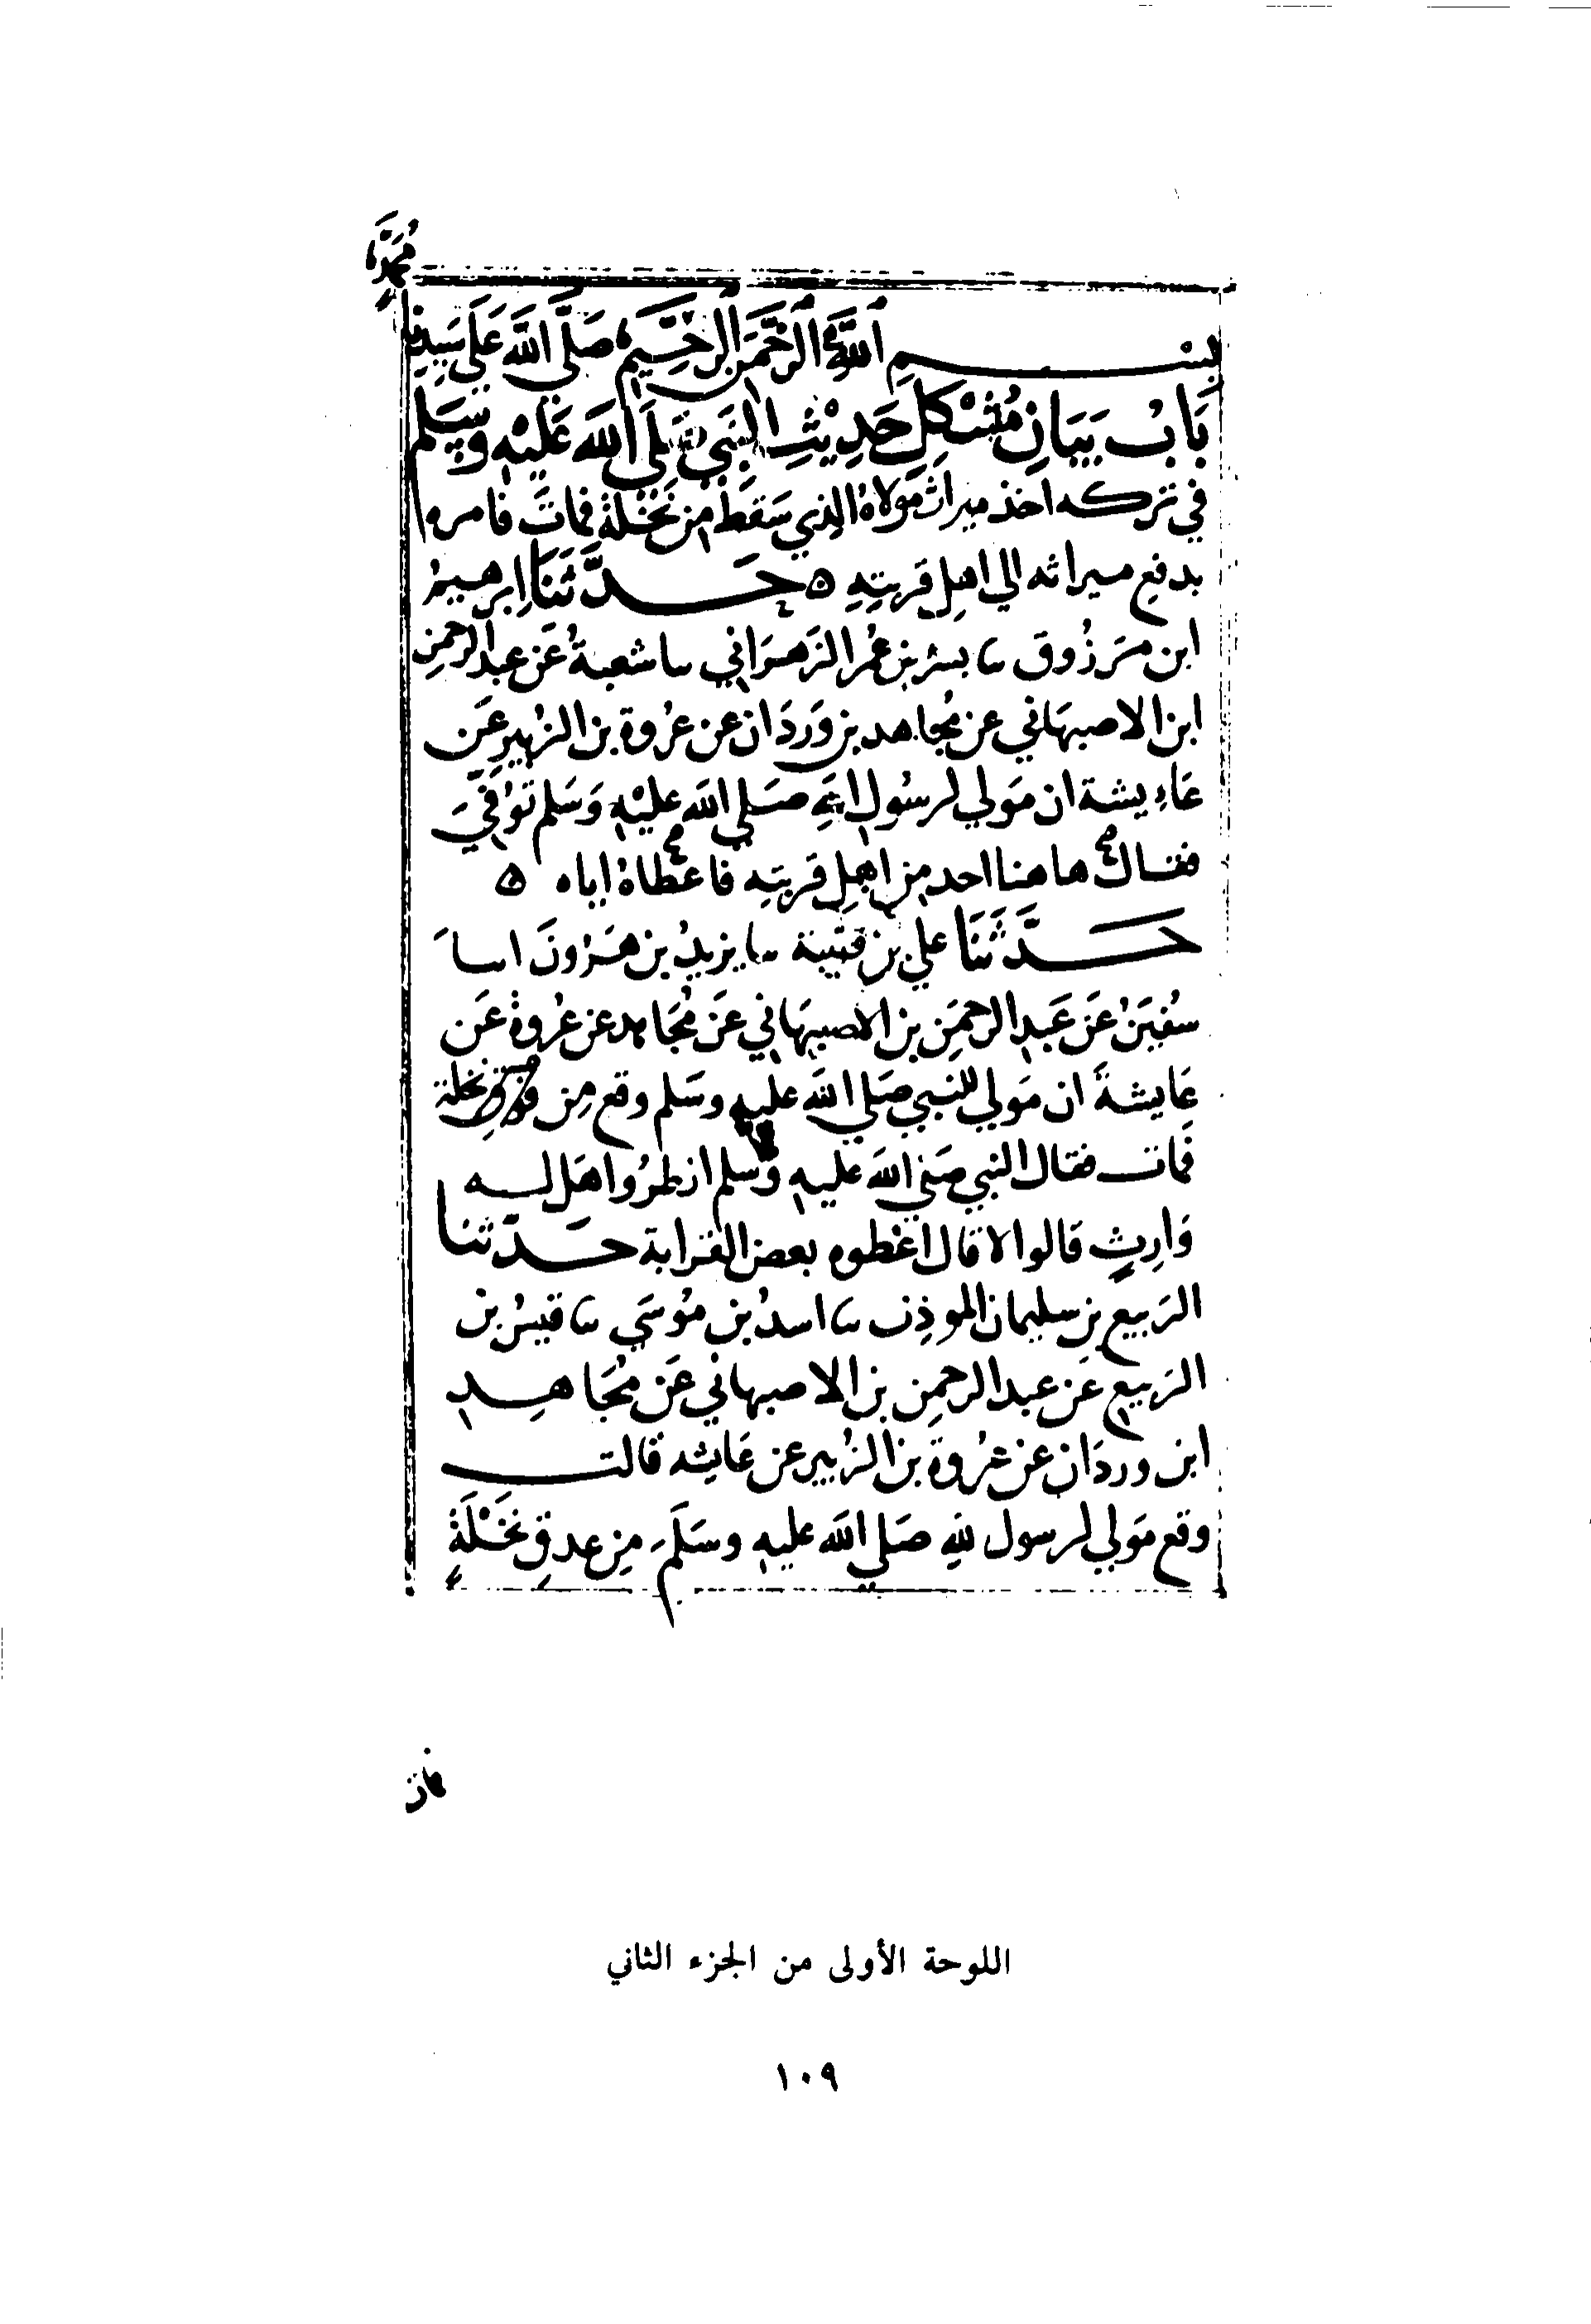 بسم الله الرحمن الرحيم صلى الله على سيدنا
محمد
باب بيان مشكل حديث النبي صلى الله عليه وسلم
في تركه اخذ ميراث مولاه الذي سقط من نخلة فمات فامره
بدفع ميراثه الي اهل قريته ه حدثنا ابرهيم
ابن مرزوق ثنا بشر بن عمر الزهراني ثنا شعبة عن عبد الرحمن
ابن الاصبهاني عن مجاهد بن وردان عن عروة بن الزبير عن
عايشة ان مولي لرسول الله صلي الله عليه وسلم توفي
فقال هاهنا احد من اهل قريته فاعطاه اياه ه
حدثنا علي بن يزيد بن هرون انا
سفين عن عبد الرحمن بن الاصبهاني عن مجاهد عن عروة عن
عايشة ان مولي للنبي صلي الله عليه وسلم وقع من نخلة
فمات فقال النبي صلي الله عليه وسلم انظروا هل له
وارث قالوا لا قال اعطوه بعض القرابة حدثنا
الربيع بن سليمان الموذن ثنا اسد بن موسي ثنا قيس بن
الربيع عن عبد الرحمن بن الاصبهاني عن مجاهد
ابن وردان عن عروة بن الزبير عن عايشه قالت
وقع مولي لرسول الله صلي الله عليه وسلم من عدق نخلة
فمات
اللوحة الأولى من الجزء الثاني
١٠٩